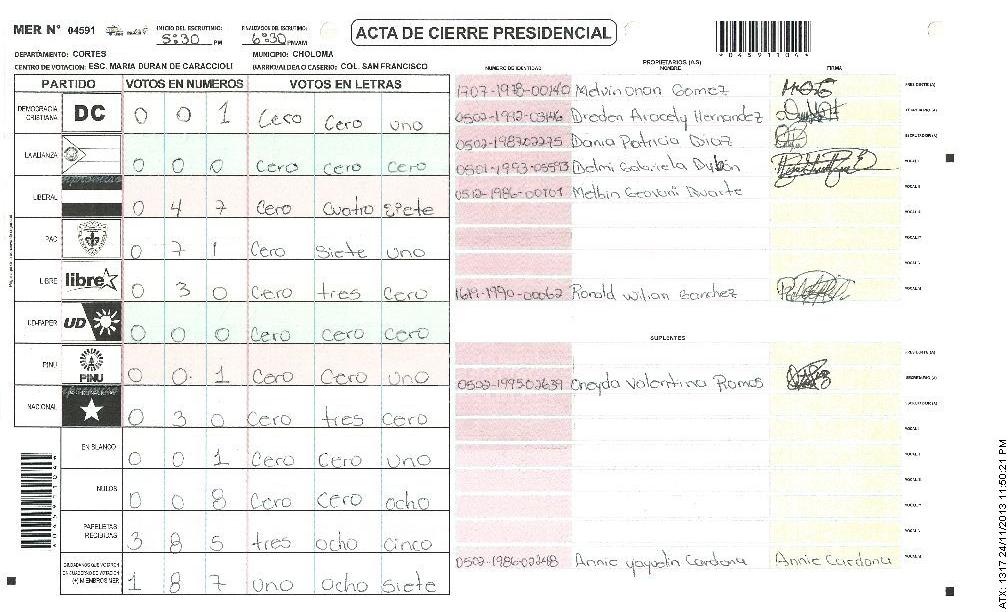 MER N° 04591 INICIO DEL ESCRUTINIO: 5:30 PM FINALIZACION DEL ESCRUTINIO: 6:30 PM/AM
ACTA DE CIERRE PRESIDENCIAL
04591104
DEPARTAMENTO: CORTES MUNICIPIO: CHOLOMA
CENTRO DE VOTACION: ESC. MARIA DURAN DE CARACCIOLI BARRIO/ALDEA O CASERIO: COL. SAN FRANCISCO
PARTIDO VOTOS EN NUMEROS VOTOS EN LETRAS
DEMOCRACIA CRISTIANA DC 0 0 1 Cero Cero uno
LA ALIANZA 0 0 0 Cero Cero Cero
LIBERAL 0 4 7 Cero Cuatro siete
PAC 0 7 1 Cero Siete uno
LIBRE libre 0 3 0 Cero tres Cero
UD-FAPER UD 0 0 0 Cero Cero Cero
PINU PINU 0 0 1 Cero Cero uno
NACIONAL 0 3 0 Cero tres Cero
EN BLANCO 0 0 1 Cero Cero uno
NULOS 0 0 8 Cero Cero ocho
PAPELETAS RECIBIDAS 3 8 5 tres ocho cinco
CIUDADANOS QUE VOTARON EN CUADERNO DE VOTACION (+) MIEMBROS MER 1 8 7 uno ocho siete
PROPIETARIOS (AS)
NUMERO DE IDENTIDAD NOMBRE FIRMA
1707-1978-00140 Melvin onan Gomez PRESIDENTE (A)
0502-1992-03146 Dreden Aracely Hernandez SECRETARIO (A)
0502-198702275 Dania Patricia Diaz ESCRUTADOR (A)
0501-1993-05593 Delmi Gabriela VOCAL I
0502-1986-00101 Melbin Geovani Duarte VOCAL II
1619-1990-00062 Ronold wilian Sanchez
SUPLENTES
PRESIDENTE (A)
0502-199502639 Cneyda Valentina Ramos SECRETARIO (A)
ESCRUTADOR (A)
VOCAL I
0502-1986-02248 Annie yaquelin Cardona Annie Cardona
ATX: 1317 24/11/2013 11:50:21 PM